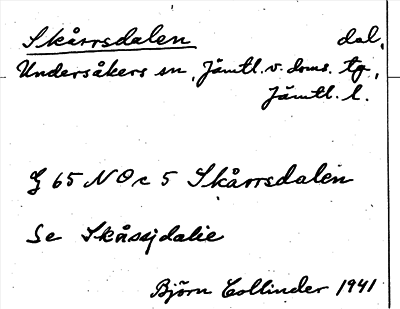 Skårrsdalen dal.
Undersåkers sn, Jämtl. v. doms. tg,
Jämtl. l.
G 65 NO c 5 Skårrsdalen
Se Skåssjdalie
Björn Collinder 1941